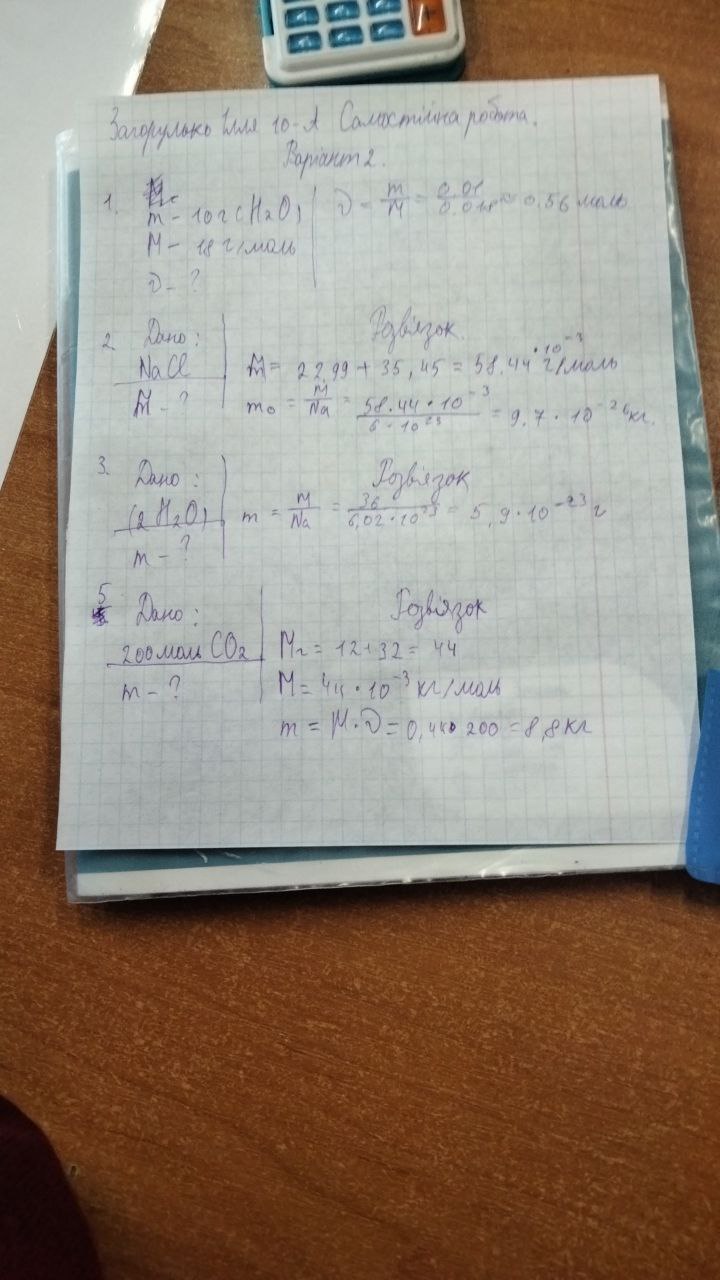 Загорулько Ілля 10-А Самостійна робота.
Варіант 2.
1. m - 10 г (H₂O)
M - 18 г/моль
ν - ?
ν = m/M = 0.01/0.018 = 0.56 моль
2. Дано:
NaCl
M - ?
Розв'язок.
M = 22,99 + 35,45 = 58,44 · 10⁻³ г/моль
m₀ = M/Na = 58.44 · 10⁻³/6 · 10²³ = 9,7 · 10⁻²⁶ кг.
3. Дано:
(2H₂O)
m - ?
Розв'язок
m = M/Na = 36/6,02 · 10²³ = 5,9 · 10⁻²³ г
5 Дано:
200 моль CO₂
m - ?
Розв'язок
Mr = 12 + 32 = 44
M = 44 · 10⁻³ кг/моль
m = M · ν = 0,44 · 200 = 8,8 кг